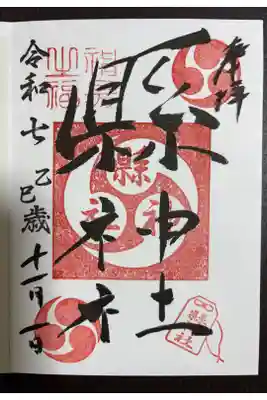 奉拝
縣神社
令和七 乙巳歳 十一月一日
縣
神社